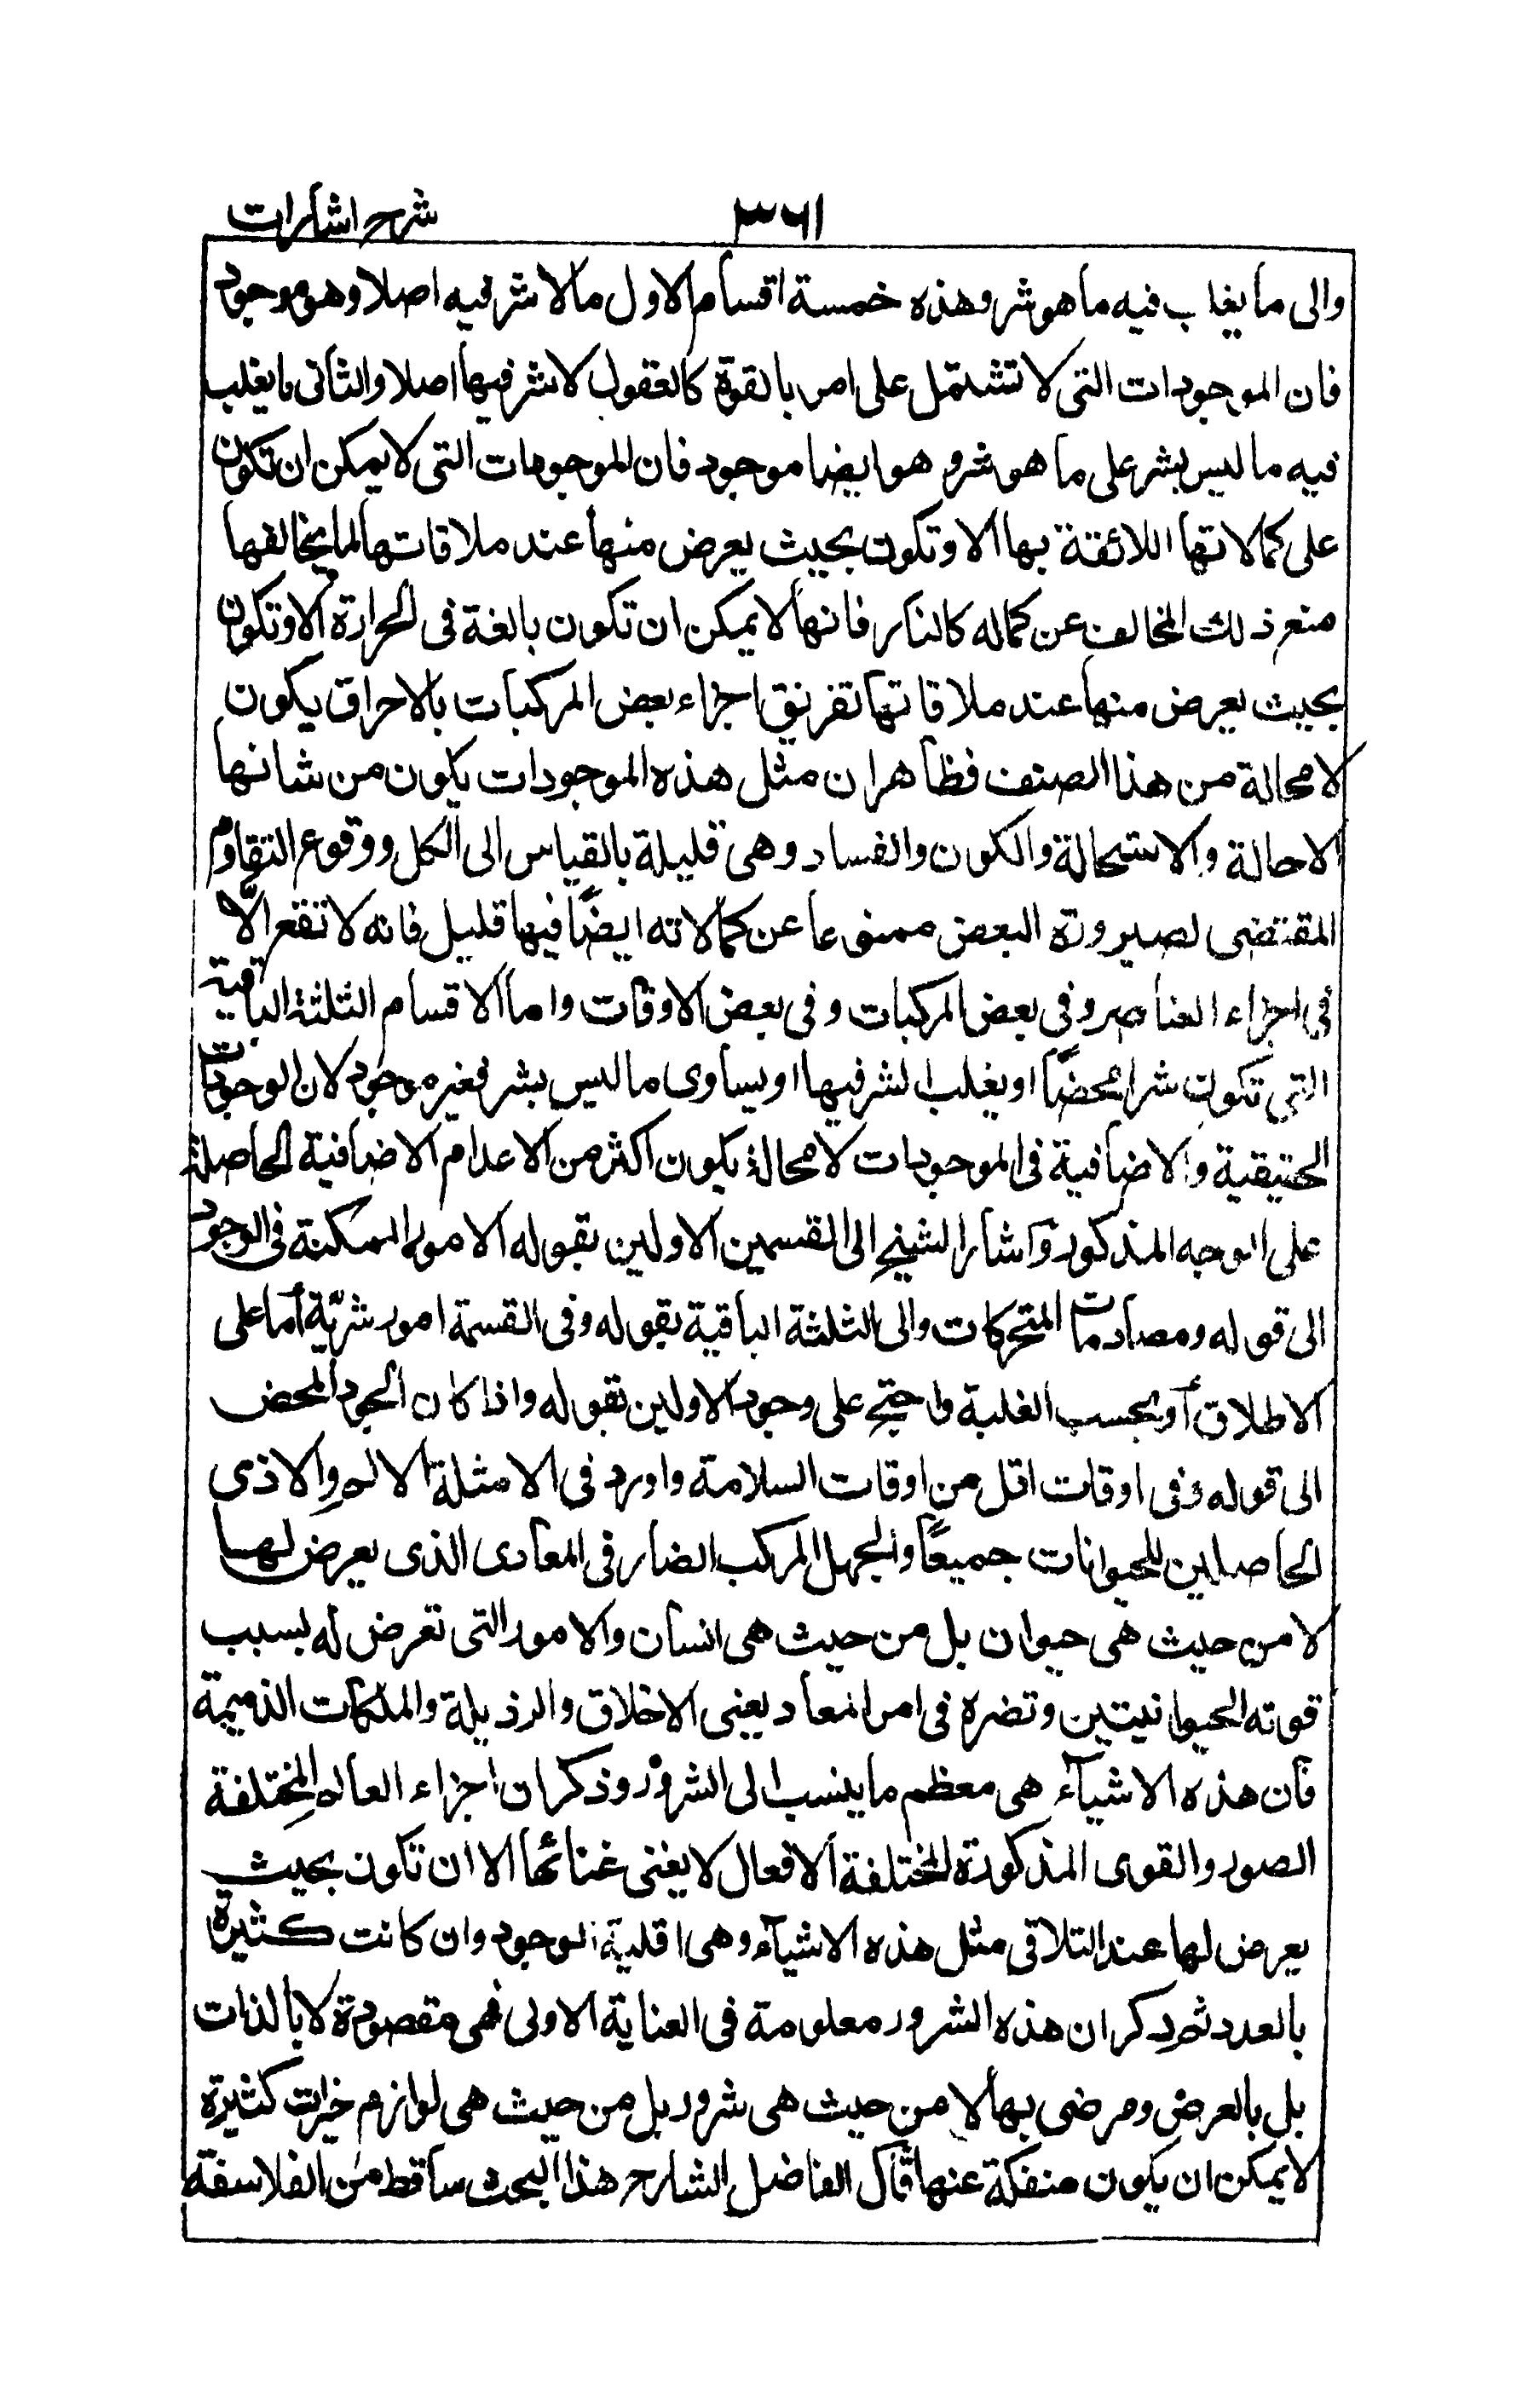 ٣٦١ شرح اشارات
والى ما يغلب فيه ما هو شر وهذه خمسة اقسام الاول ما لا شر فيه اصلا وهو موجود
فان الموجودات التى لا تشتمل على امر بالقوة كالعقول لا شر فيها اصلا والثانى ما يغلب
فيه ما ليس بشر على ما هو شر و هو ايضا موجود فان الموجودات التى لا يمكن ان تكون
على كمالاتها اللائقة بها الا وتكون بحيث يعرض منها عند ملاقاتها لما يخالفها
منع ذلك المخالف عن كماله كالنار فانها لا يمكن ان تكون بالغة فى الحرارة الا وتكون
بحيث يعرض منها عند ملاقاتها تفريق اجزاء بعض المركبات بالاحراق يكون
لا محالة من هذا الصنف فظاهر ان مثل هذه الموجودات يكون من شانها
الاحالة والاستحالة والكون والفساد وهى قليلة بالقياس الى الكل ووقوع التقاوم
المقتضى لصيرورة البعض ممنوعا عن كمالاته ايضًا فيها قليل فانه لا تقع الّا
فى اجزاء العناصر وفى بعض المركبات وفى بعض الاوقات واما الاقسام الثلثة الباقية
التى تكون شرا محضًا او يغلب الشر فيها او يساوى ما ليس بشر فغير موجود لان الوجودات
الحقيقية والاضافية فى الموجودات لا محالة يكون اكثر من الاعدام الاضافية الحاصلة
على الوجه المذكور واشار الشيخ الى القسمين الاولين بقوله الامور الممكنة فى الوجود
الى قوله ومصادمات المتحركات والى الثلثة الباقية بقوله وفى القسمة امور شريّة اما على
الاطلاق أو بحسب الغلبة واحتج على وجود الاولين بقوله واذا كان الجود المحض
الى قوله وفى اوقات اقل من اوقات السلامة واورد فى الامثلة الالم والاذى
الحاصلين للحيوانات جميعًا والجهل المركب الضار فى المعاد الذى يعرض لها
لا من حيث هى حيوان بل من حيث هى انسان والامور التى تعرض له بسبب
قوته الحيوانيتين وتضره فى امر المعاد يعنى الاخلاق والرذيلة والملكات الذميمة
فان هذه الاشيآء هى معظم ما ينسب الى الشرور وذكر ان اجزاء العالم المختلفة
الصور والقوى المذكورة المختلفة الافعال لا يغنى غنائها الا ان تكون بحيث
يعرض لها عند التلاقى مثل هذه الاشيآء وهى اقلية الوجود وان كانت كثيرة
بالعدد ثم ذكر ان هذه الشرور معلومة فى العناية الاولى فهى مقصودة لا بالذات
بل بالعرض ومرضى بها لا من حيث هى شرور بل من حيث هى لوازم خيرات كثيرة
لا يمكن ان يكون منفكة عنها قال الفاضل الشارح هذا البحث ساقط من الفلاسفة